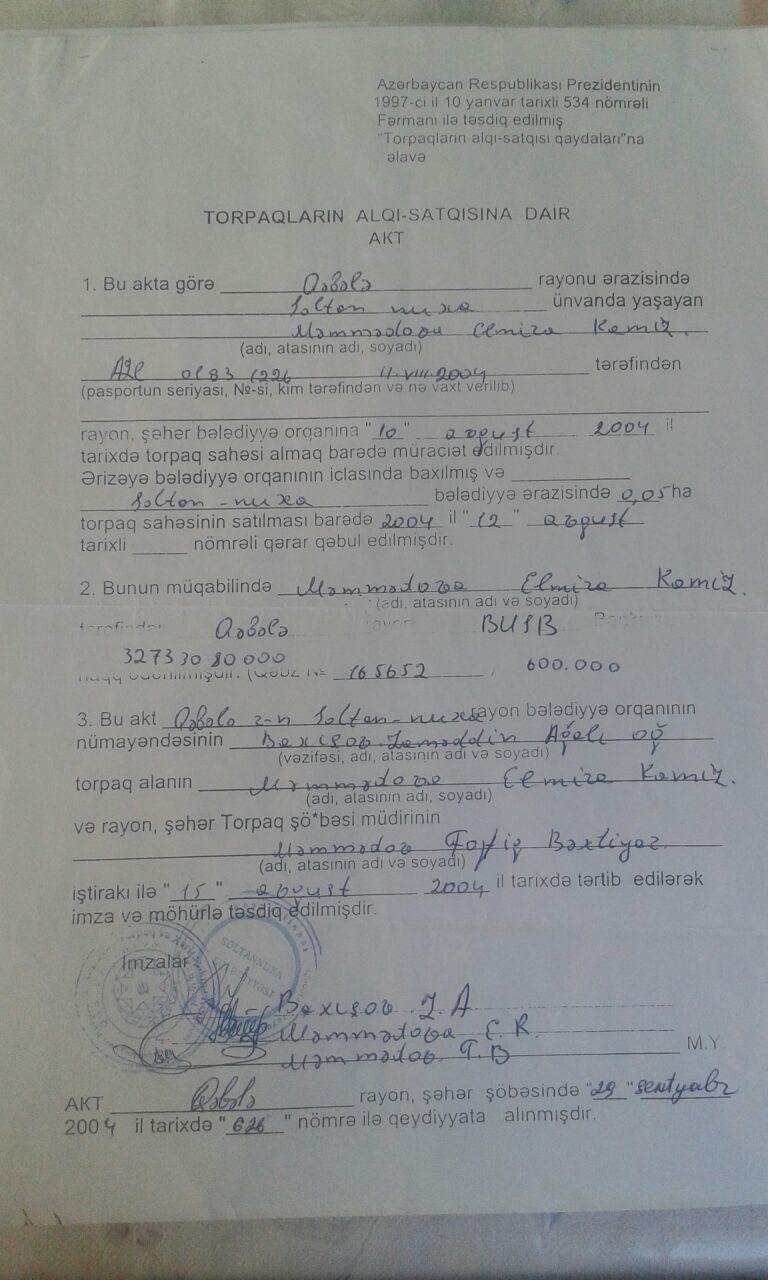 Azərbaycan Respublikası Prezidentinin
1997-ci il 10 yanvar tarixli 534 nömrəli
Fərmanı ilə təsdiq edilmiş
"Torpaqların alqı-satqısı qaydaları"na
əlavə
TORPAQLARIN ALQI-SATQISINA DAIR
AKT
1. Bu akta görə Qəbələ rayonu ərazisində
Soltan nuxa ünvanda yaşayan
Məmmədova Elmira Kamiz.
(adı, atasının adı, soyadı)
AZE 0183 1226 11.VIII.2004 tərəfindən
(pasportun seriyası, №-si, kim tərəfindən və nə vaxt verilib)
rayon, şəhər bələdiyyə orqanına "10" avqust 2004 il
tarixdə torpaq sahəsi almaq barədə müraciət edilmişdir.
Ərizəyə bələdiyyə orqanının iclasında baxılmış və
Soltan-nuxa bələdiyyə ərazisində 0,05 ha
torpaq sahəsinin satılması barədə 2004 il "12" avqust
tarixli nömrəli qərar qəbul edilmişdir.
2. Bunun müqabilində Məmmədova Elmira Kamiz.
(adı, atasının adı və soyadı)
tərəfindən Qəbələ rayon BUSB
327330 80000 600.000
haqq ödənilmişdir. (Qəbz № 165652
3. Bu akt Qəbələ r-n Soltan-nuxa rayon bələdiyyə orqanının
nümayəndəsinin Baxışov Zəməddin Ağalı oğ
(vəzifəsi, adı, atasının adı və soyadı)
torpaq alanın Məmmədova Elmira Kamiz.
(adı, atasının adı, soyadı)
və rayon, şəhər Torpaq şö*bəsi müdirinin
Məmmədov Bəxtiyar
(adı, atasının adı və soyadı)
iştirakı ilə "15" avqust 2004 il tarixdə tərtib edilərək
imza və möhürlə təsdiq edilmişdir.
SOLTANNUXA
BƏLƏDİYYƏSİ
İmzalar
Baxışov Z.A
Məmmədova E.K.
Məmmədov T.B
M.Y.
AKT Qəbələ rayon, şəhər şöbəsində "29" sentyabr
2004 il tarixdə "626" nömrə ilə qeydiyyata alınmışdır.